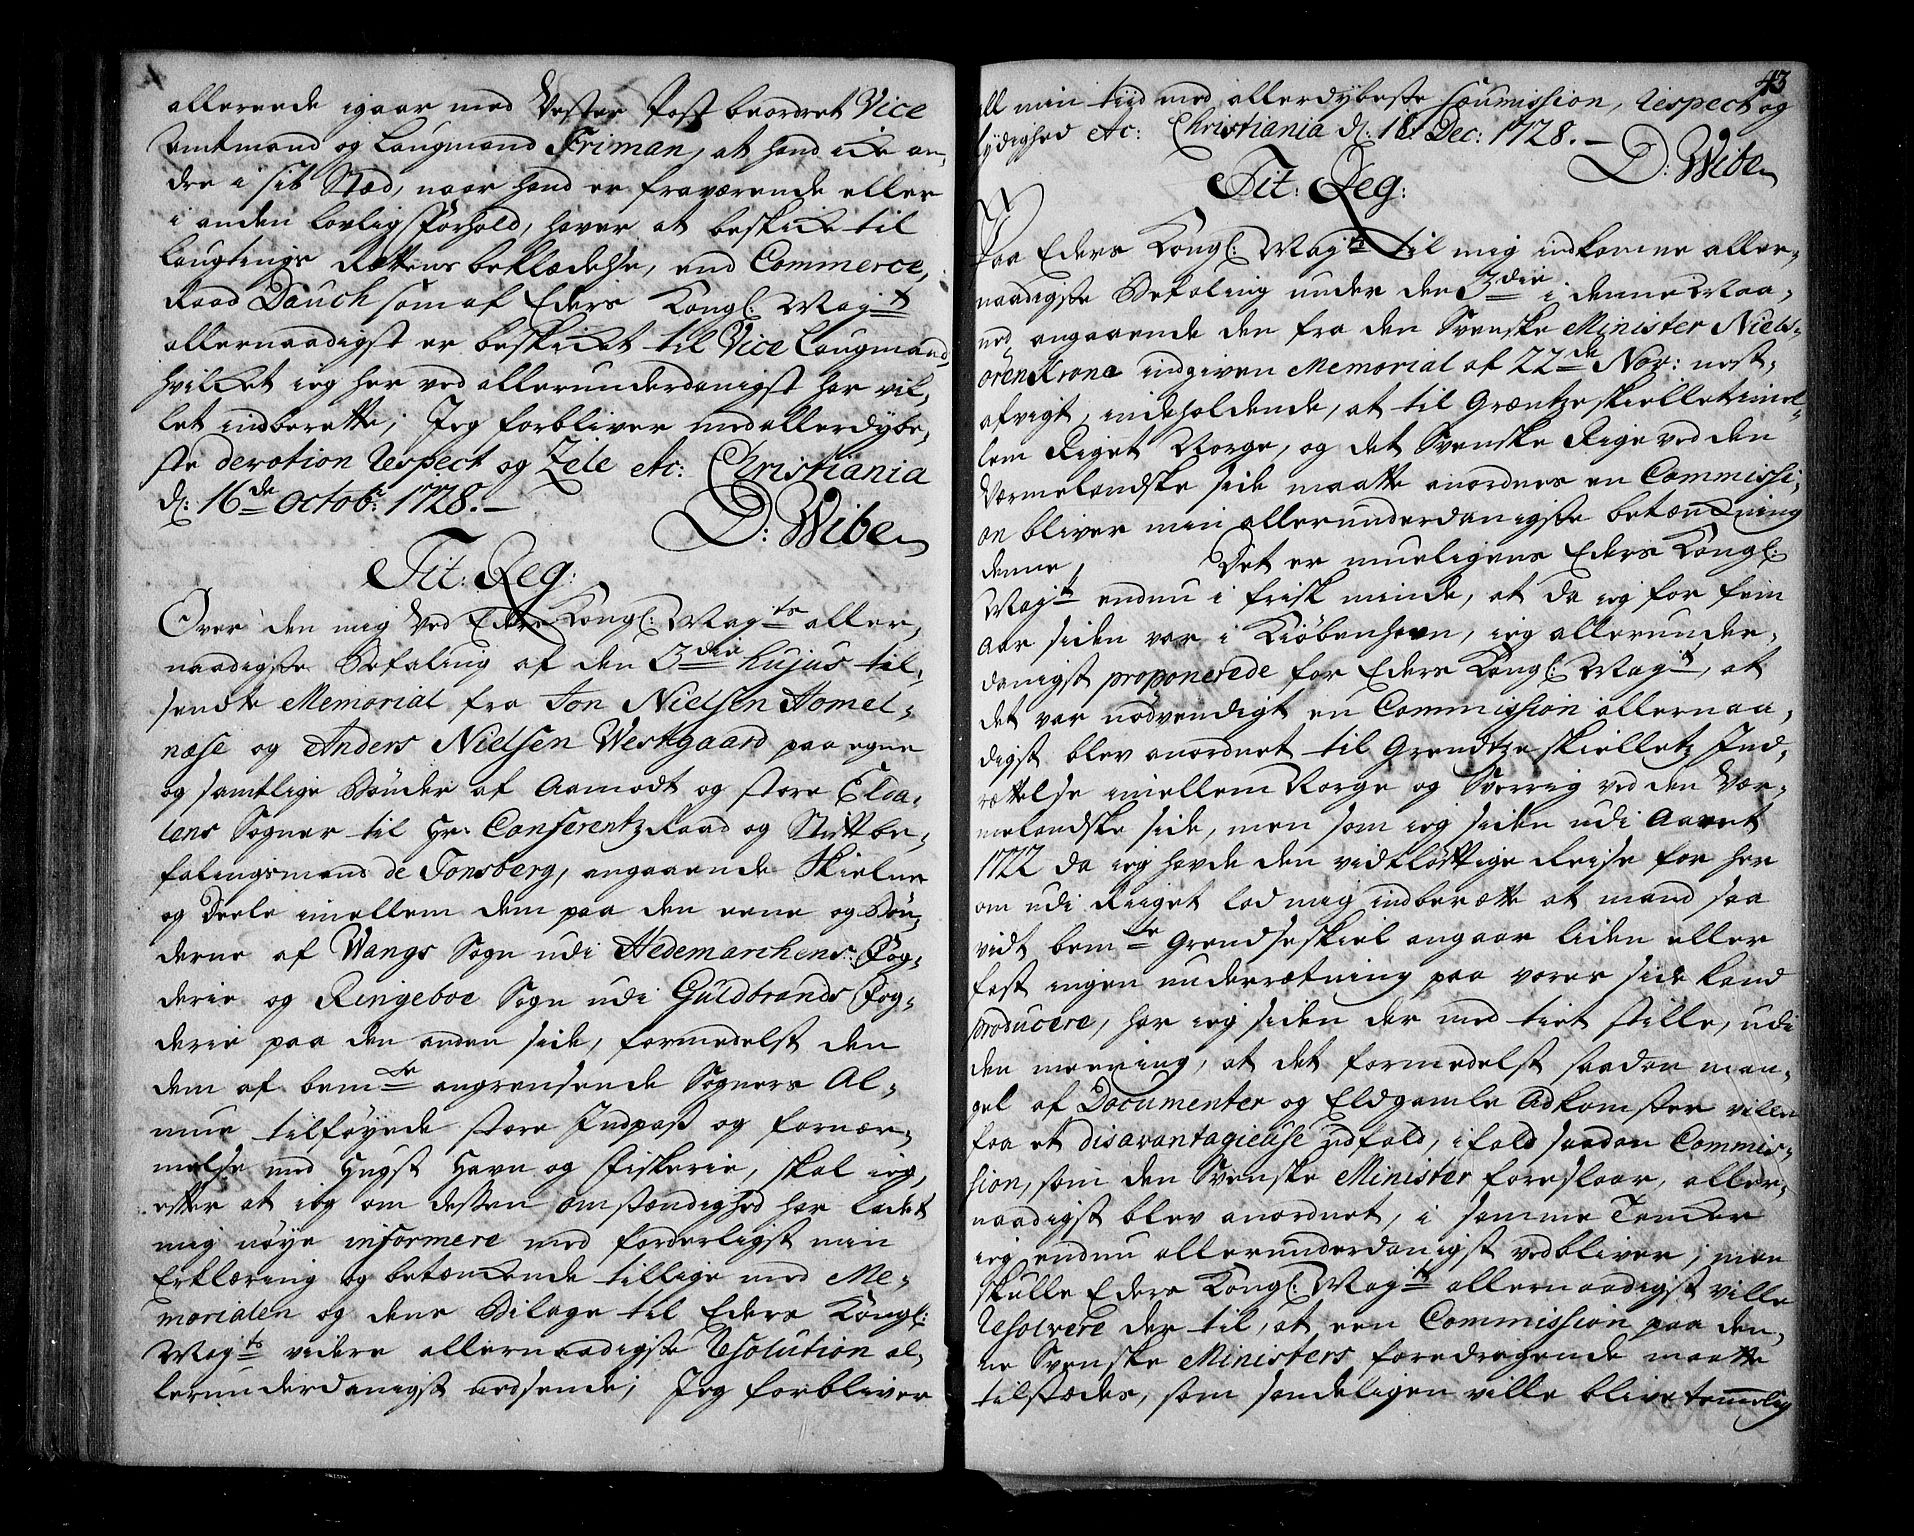 allereede igaar med Vester Post beordret Vice
Amtmand og Laugmand Friman, at hand icke an,
dre i sit Stæd, naar hand er fraværende eller
i anden lovlig forhold, haver at beskicke til
Laugtings Rettens beklædelse, end Commerce,
Raad Dauch som af Eders Kongl: Mayt
allernaadigst er beskicket til Vice Laugmand,
hvilcket ieg her ved allerunderdanigst har vil,
let indberette; Jeg forbliver med allerdybe,
ste devotion Respect og Zele etc: Christiania
d: 16de Octob: 1728.–
D: Wibe
Tit: Reg:
Over den mig ved Eders Kongl: Mayts aller,
naadigste Befaling af den 3die hujus til,
sendte Memorial fra Jon Nielsen Homel,
næse og Anders Nielsen Westgaard paa egne
og samtlige Bønder af Aamodt og store Elva,
lens Sogner til Hr. Conferentz Raad og Stiftbe,
falingsmand de Tonsberg, angaaende Skielne
og Deele imellem dem paa den eene og Bøn,
derne af Wangs Sogn udi Hedemarchens Fog,
derie og Ringeboe Sogn udi Guldbrands Fog,
derie paa den anden side, formedelst den
dem af bemte angrensende Sogners Al,
mue tilføyede store Indpas og fornær,
melse med Hugst Havn og Fiskerie, skal ieg,
efter at ieg om dessen omstændighed har ladet
mig nøye informere med forderligst min
Erklæring og betænckende tillige med Me,
morialen og dens Bilage til Eders Kongl:
Mayts videre allernaadigste Resolution al,
lerunderdanigst nedsende; Jeg forbliver
43
all min tiid med allerdybeste Soumission, Respect og
lydighed etc: Christiania d: 18 Dec: 1728.–
D: Wibe
Tit: Reg:
Paa Eders Kongl: Mayts til mig indkomne aller,
naadigste Befaling under den 3die i denne Maa,
ned angaaende den fra den Svenske Minister Niels
örenKrona indgiven Memorial af 22de Nov: nest,
afvigt, indeholdende, at til Græntzeskiellet imel,
lem Riget Norge, og det Svenske Rige ved den
Værmelandske side maatte anordnes en Commissi,
on bliver min allerunderdanigste betænckning
denne, Det er mueligens Eders Kongl:
Mayt endnu i frisk minde, at da ieg for fem
Aar siden var i Kiöbenhavn, ieg allerunder,
danigst proponerede for Eders Kongl: Mayt, at
det var nödvendigt en Commission allernaa,
digst blev anordnet til Grendtze skielletz Ind,
rettelse imellem Norge og Sverrig ved den Vær,
melandske side, men som ieg siden udi Aaret
1722 da ieg havde den vidtløftige Reise for her
om udi Riiget lod mig indberætte at mand saa
vidt bemte Grendseskiel angaar liden eller
fast ingen underretning paa vores side kand
producere, har ieg siden der med tiet stille, udi
den meening, at det formedelst saadan man,
gel af Documenter og Eldgamle Adkomster ville
faa et disavantagieuse udfald, ifald saadan Commis,
sion, som den Svenske Minister foreslaar, aller,
naadigst blev anordnet, i samme Tancker
ieg endnu allerunderdanigst vedbliver; men
skulle Eders Kongl: Mayts allernaadigst ville
Resolvere der til, at een Commission paa den,
ne Svenske Ministers foredragende maatte
tilstædes, som sandeligen ville blive temmelig